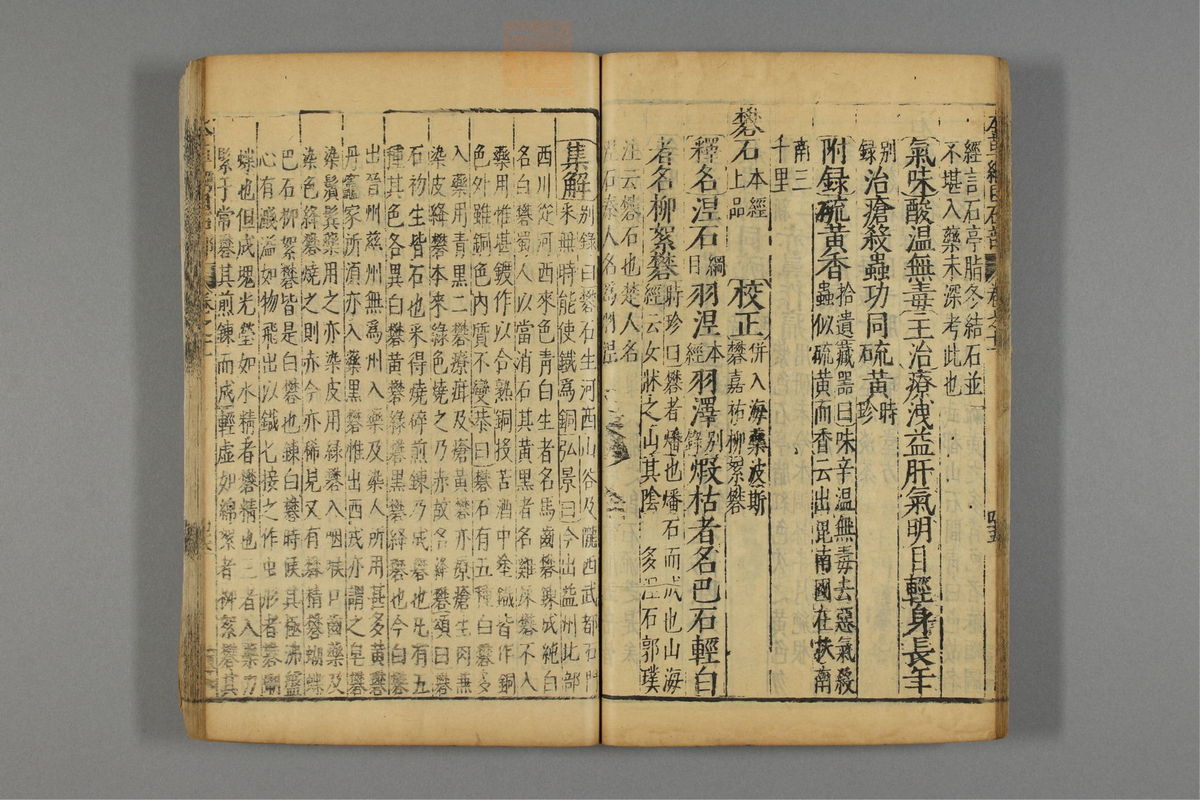 經言石亭脂冬結石並
不堪入藥未深考此也
氣味酸溫無毒主治療洩益肝氣明目輕身長年
別録治瘡殺蟲功同硫黃時珍
附録硫黃香拾遺藏器曰味辛溫無毒去惡氣殺
蟲似硫黃而香云出昆南國在扶南
南三
千里
礬石本經上品校正併入海藥波斯
礬嘉祐柳絮礬
釋名涅石綱目羽涅本經羽澤別錄煆枯者名巴石輕白
者名柳絮礬時珍曰礬者燔也燔石而成也山海
經云女牀之山其陰多涅石郭璞
注云礬石也楚人名
涅石秦人名爲羽涅
集解別錄曰礬石生河西山谷及隴西武都石門
采無時能使鐵爲銅弘景曰今出益州北部
西川從河西來色青白生者名馬齒礬鍊成純白
名白礬蜀人以當消石其黃黑者名雞屎礬不入
藥用惟堪鍍作以合熟銅投苦酒中塗鐵皆作銅
色外雖銅色內質不變恭曰礬石有五種白礬多
入藥用青黑二礬療疳及瘡黃礬亦療瘡生肉兼
染皮絳礬本來綠色燒之乃赤故名絳礬頌曰礬
石初生皆石也采得燒碎煎鍊乃成礬也凡有五
種其色各異白礬黃礬綠礬黑礬絳礬也今白礬
出晉州慈州無爲州入藥及染人所用甚多黃礬
丹竈家所須亦入藥黑礬惟出西戎亦謂之皂礬
染鬚鬢藥用之亦染皮用綠礬入咽喉口齒藥及
染色絳礬燒之則赤今亦稀見又有礬精礬蝴蝶
巴石柳絮礬皆是白礬也鍊白礬時候其極沸盤
心有濺溢如物飛出以鐵匕接之作虫形者礬蝴
蝶也但成塊光瑩如水精者礬精也二者入藥力
緊于常礬其煎鍊而成輕虛如綿絮者柳絮礬其